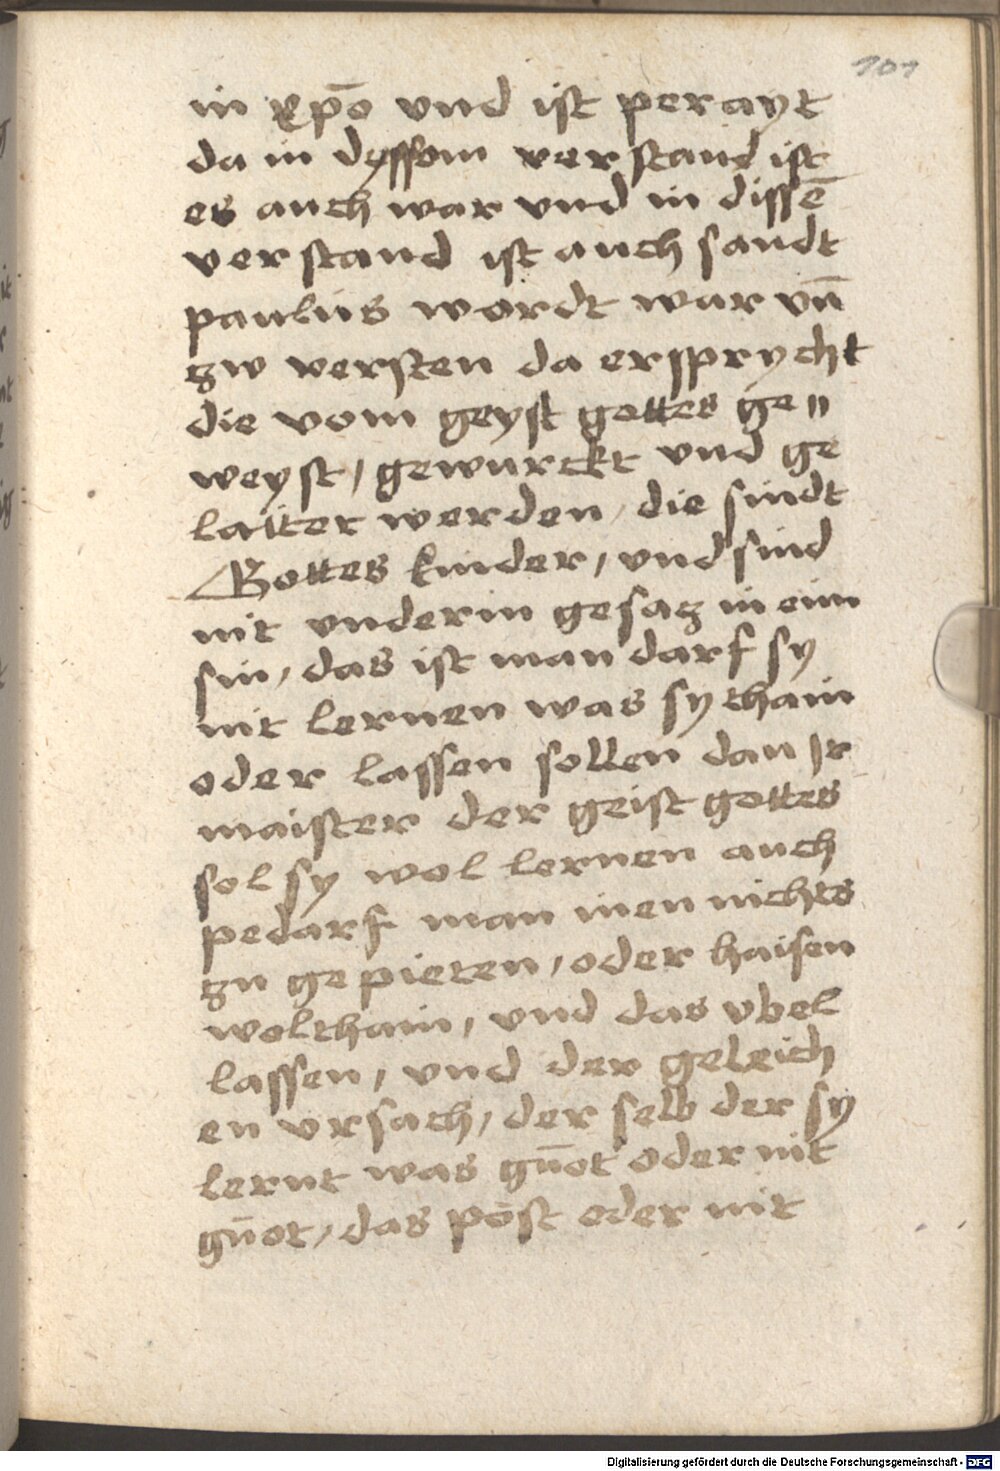 101
in xp̄o vnd ist perayt
da in dyssom verstand ist
es auch war vnd in dissē
verstand ist auch sandt
paulus wordt war vn̄
zw versten da ersprycht
die vom geyst gottes ge〃
weyst, gewurckt vnd ge
laitter werden, die sindt
Gottes kinder, vnd sind
nit vnderin gesaz in eim
sin, das ist man darf sy
nit lernen was sy thain
oder lassen sollen dan Ir
maister der geist gottes
sol sy wol lernen auch
pedarf man inen nichts
zu gepieten, oder haisen
wolthain, vnd das vbel
lassen, vnd der geleich
en vrsach, der selb der sy
lernt was gūot oder nit
gūot, das pöst oder nit
Digitalisierung gefördert durch die Deutsche Forschungsgemeinschaft - DFG